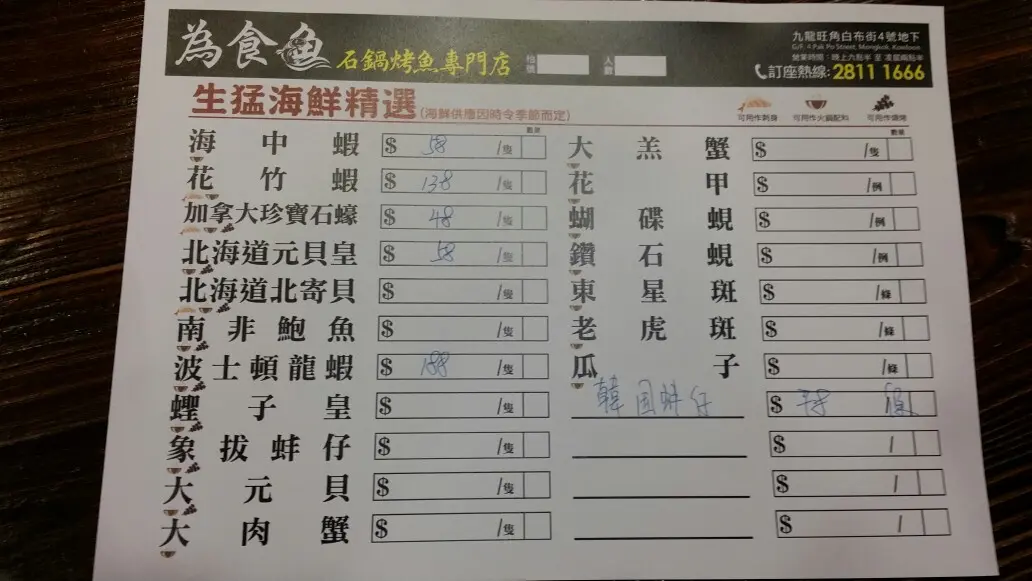 為食魚
石鍋烤魚專門店
枱號
人數
九龍旺角白布街4號地下
G/F, 4 Pak Po Street, Mongkok, Kowloon
營業時間：晚上六點半 至 凌晨兩點半
訂座熱線: 2811 1666
生猛海鮮精選 (海鮮供應因時令季節而定)
可用作刺身 可用作火鍋配料 可用作燒烤
數量 數量
海中蝦 $ 58 /隻
花竹蝦 $ 138 /隻
加拿大珍寶石蠔 $ 48 /隻
北海道元貝皇 $ 58 /隻
北海道北寄貝 $ /隻
南非鮑魚 $ /隻
波士頓龍蝦 $ 188 /隻
蟶子皇 $ /隻
象拔蚌仔 $ /隻
大元貝 $ /隻
大肉蟹 $ /隻
大羔蟹 $ /隻
花甲 $ /例
蝴碟蜆 $ /例
鑽石蜆 $ /例
東星斑 $ /條
老虎斑 $ /條
瓜子 $ /條
韓国蚌仔 $
$ /
$ /
$ /